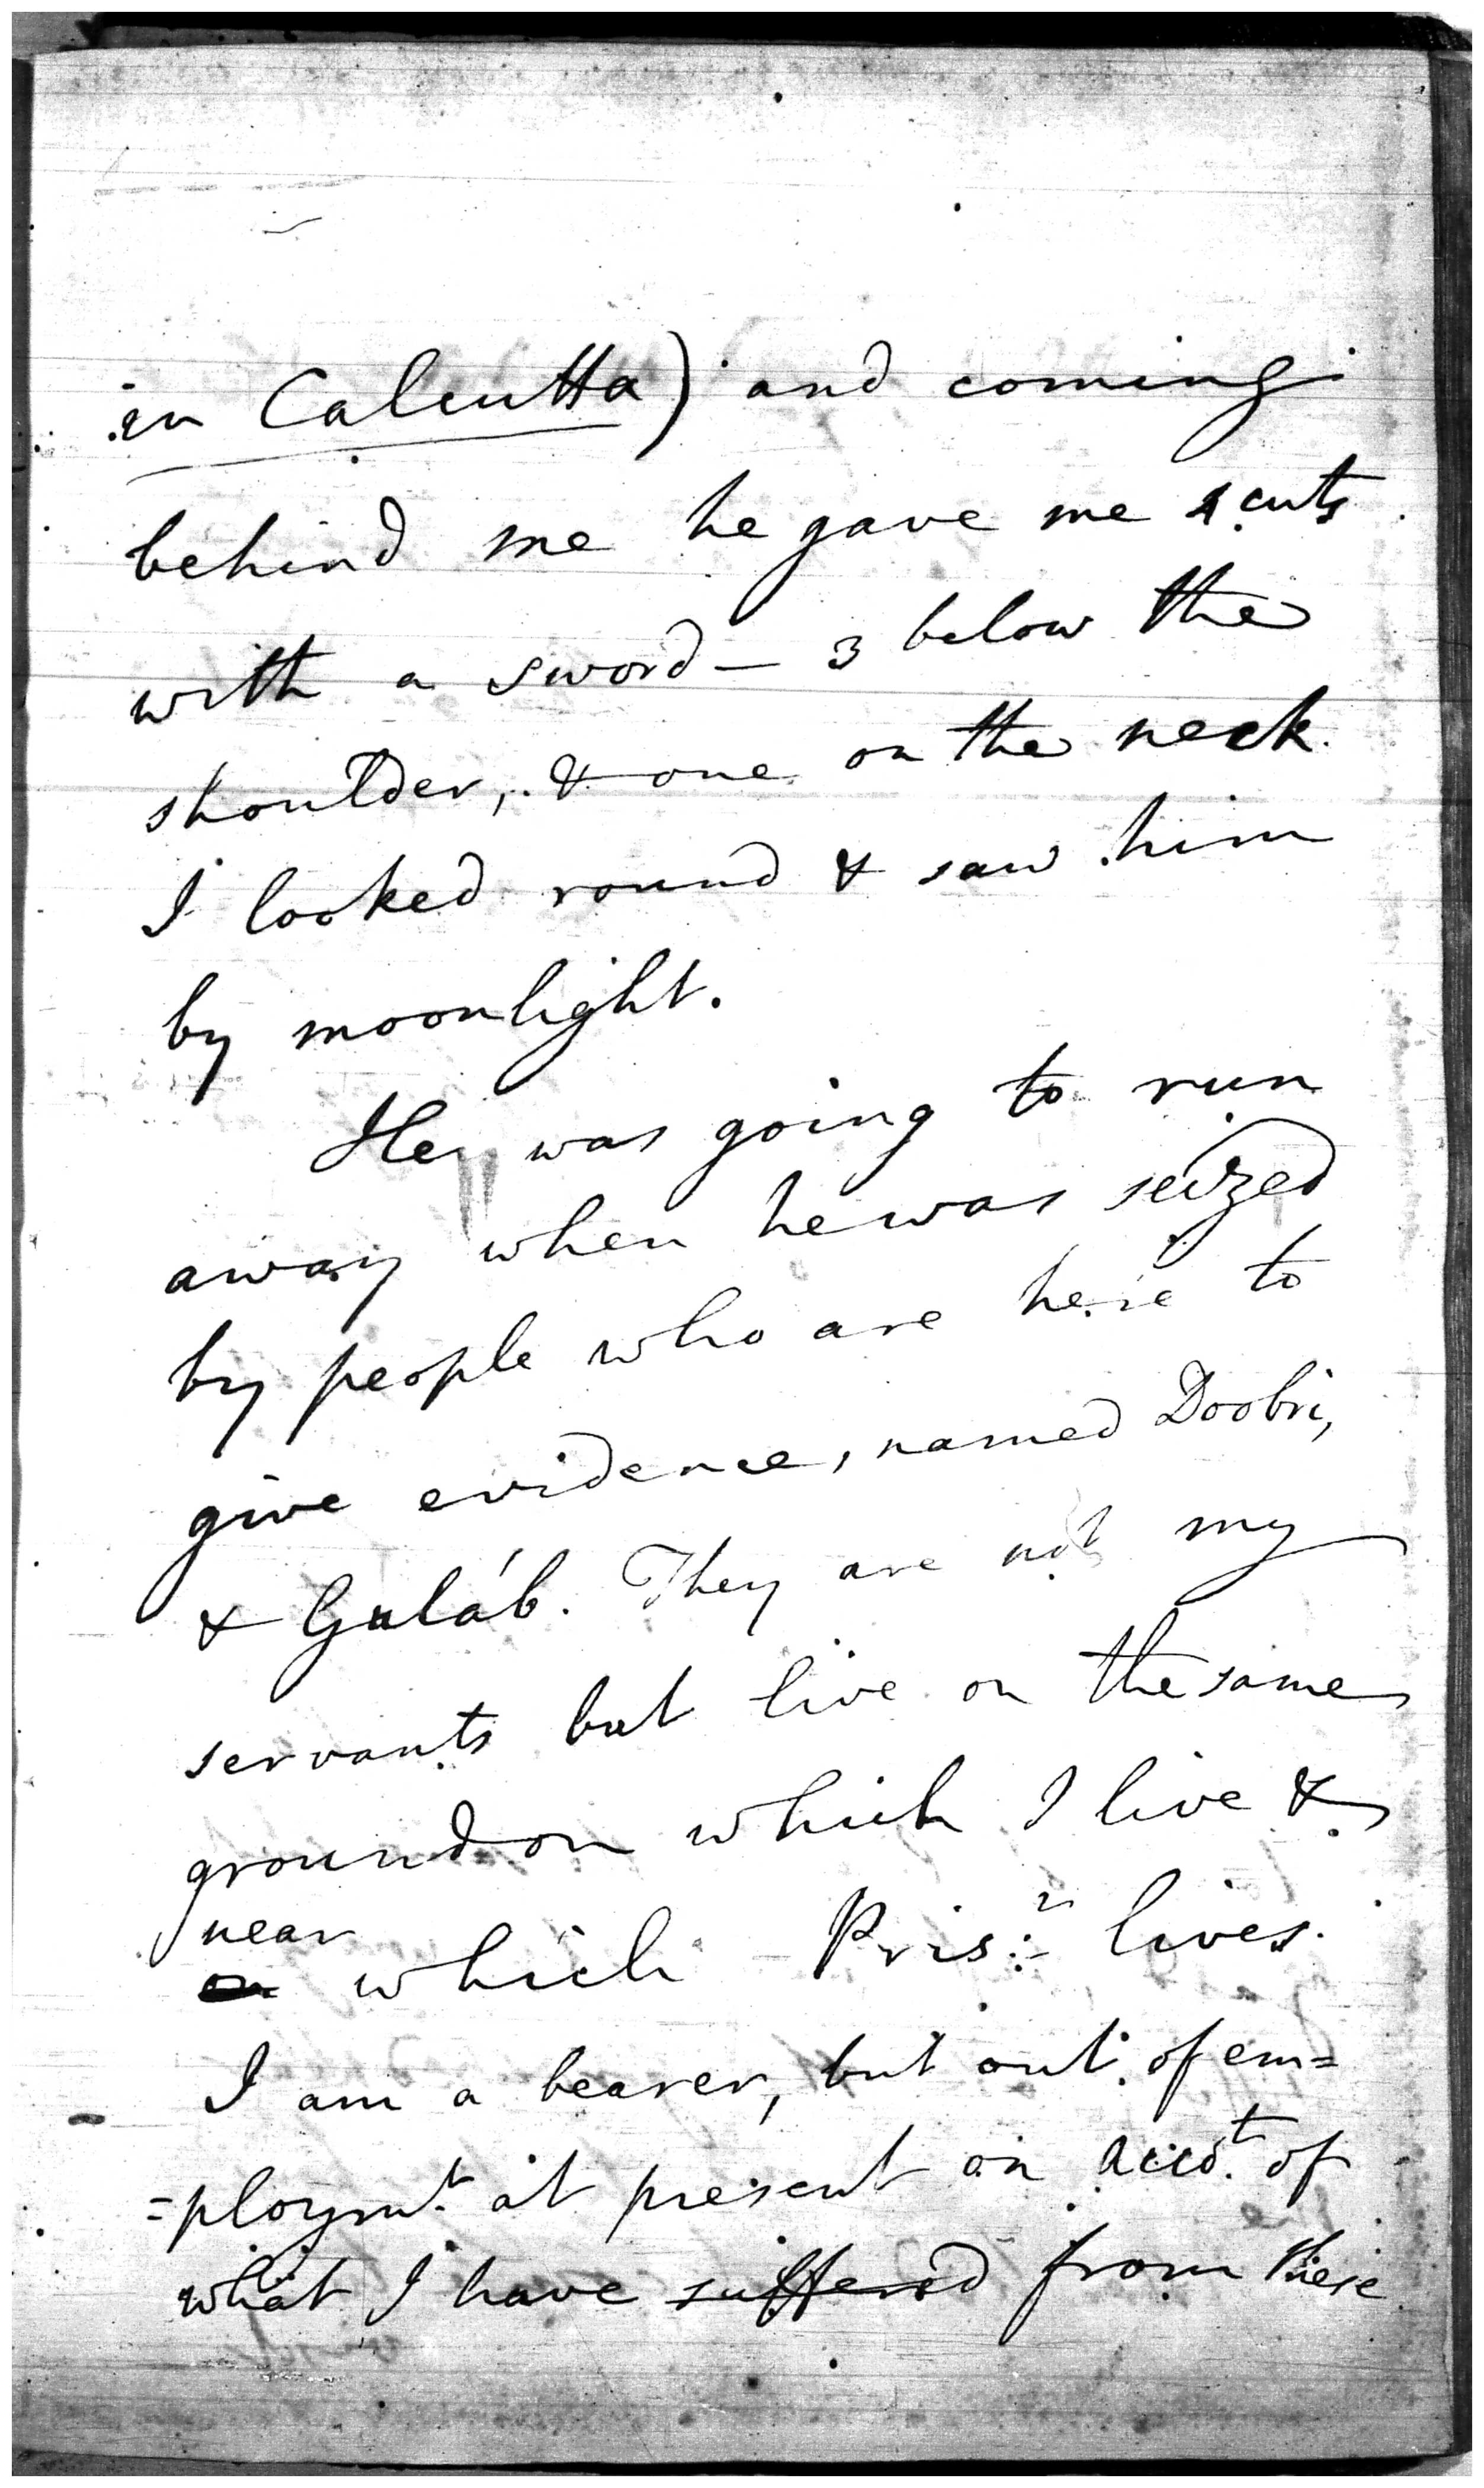 in Calcutta) and coming
behind me he gave me 4 cuts
with a sword — 3 below the
shoulder, & one on the neck.
I looked round & saw him
by moonlight.
He was going to run
away when he was seized
by people who are here to
give evidence, named Doobri,
& Guláb. They are not my
servants but live on the same
ground on which I live &
near
on which Pris:n lives.
I am a bearer, but out of em=
=ploymt. at present on accot. of
what I have suffered from these